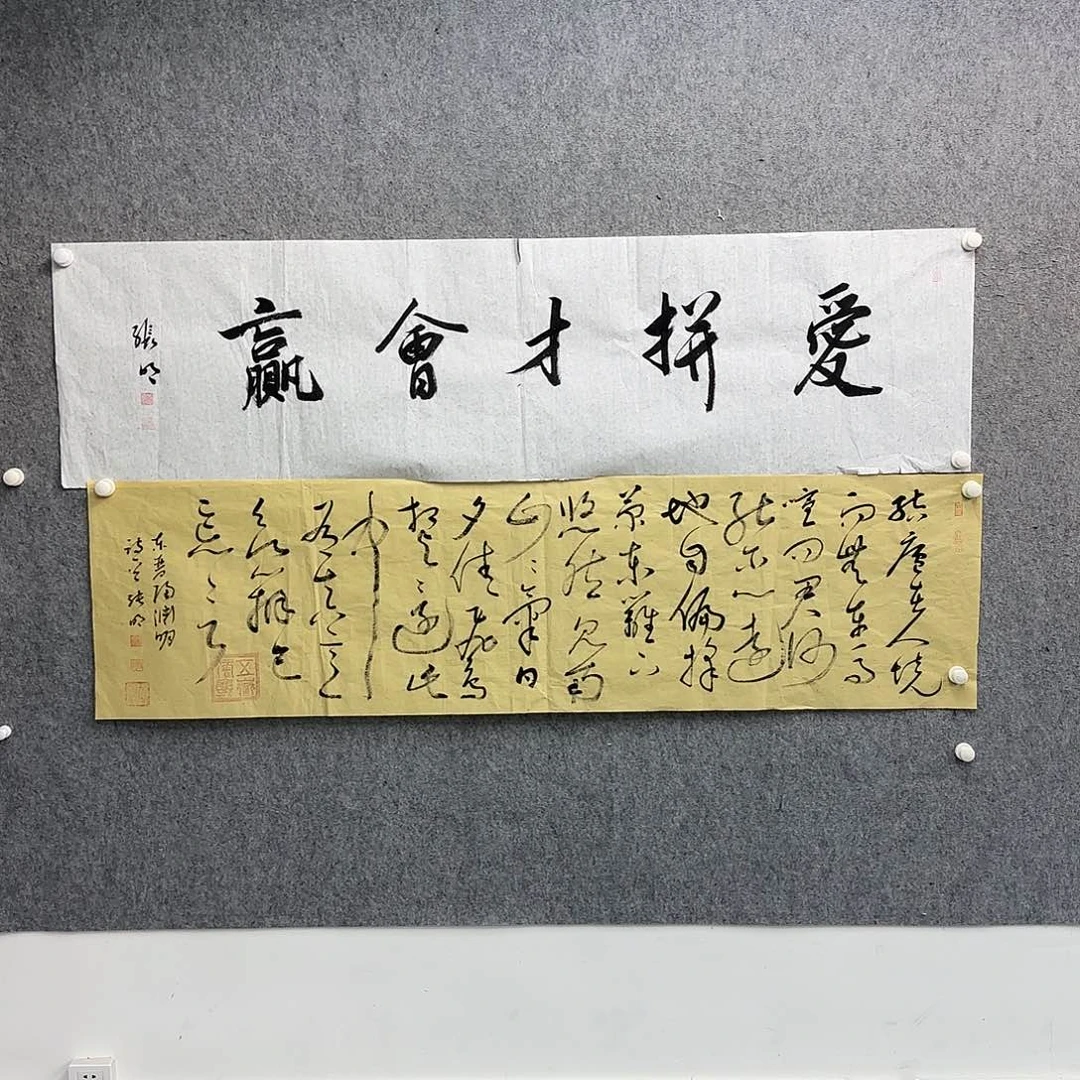 愛拼才會贏
張明
結廬在人境
而無車馬
喧问君何
能尔心遠
地自偏採
菊東籬下
悠然見南
山々氣日
夕佳飛鳥
相与還此
中
有真意
欲辨已
忘言
东晋陶渊明
詩一首張明